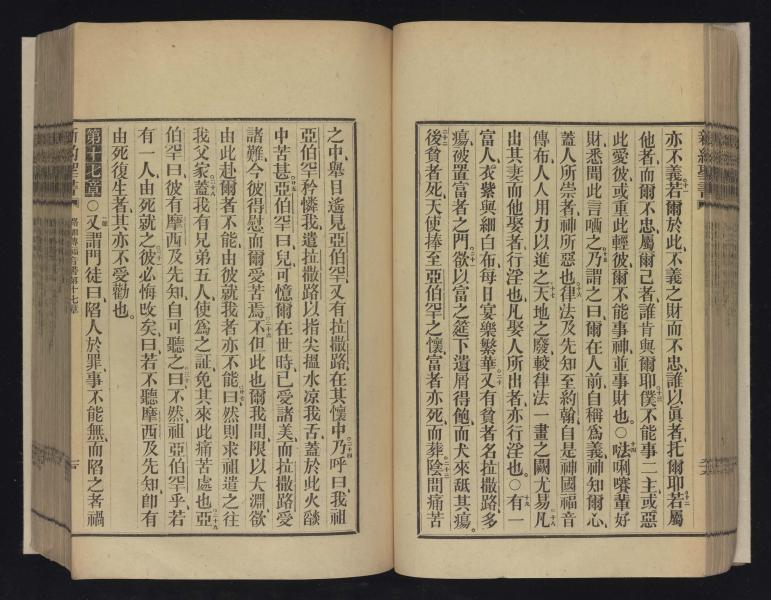 亦不義、若爾於此不義之財而不忠、誰以眞者托爾耶、若屬
他者、而爾不忠、屬爾己者、誰肯與爾耶、僕不能事二主、或惡
此愛彼、或重此輕彼、爾不能事神、並事財也。○㗲唎賽輩好
財、悉聞此言、哂之、乃謂之曰、爾在人前自稱爲義、神知爾心、
蓋人所崇者、神所惡也、律法及先知至約翰、自是神國福音
傳布、人人用力以進之、天地之廢、較律法一畫之闕尤易、凡
出其妻而他娶者、行淫也、凡娶人所出者、亦行淫也。○有一
富人、衣紫與細白布、每日宴樂繁華、又有貧者名拉撒路、多
瘍、被置富者之門、欲以富之筵下遺屑得飽、而犬來舐其瘍。
後貧者死、天使捧至亞伯罕之懷、富者亦死而葬、陰間痛苦
之中、舉目遙見亞伯罕、又有拉撒路在其懷中、乃呼曰、我祖
亞伯罕、矜憐我、遣拉撒路以指尖搵水凉我舌、蓋於此火燄
中苦甚、亞伯罕曰、兒可憶爾在世時、已受諸美、而拉撒路受
諸難、今彼得慰、而爾受苦焉、不但此也、爾我間限以大淵、欲
由此赴爾者不能、由彼就我者亦不能、曰、然則求祖遣之往
我父家、蓋我有兄弟五人、使爲之証、免其來此痛苦處也、亞
伯罕曰、彼有摩西及先知、自可聽之、曰、不然、祖亞伯罕乎、若
有一人由死就之、彼必悔改矣、曰、若不聽摩西及先知、卽有
由死復生者、其亦不受勸也。
第十七章○又謂門徒曰、陷人於罪、事不能無、而陷之者禍